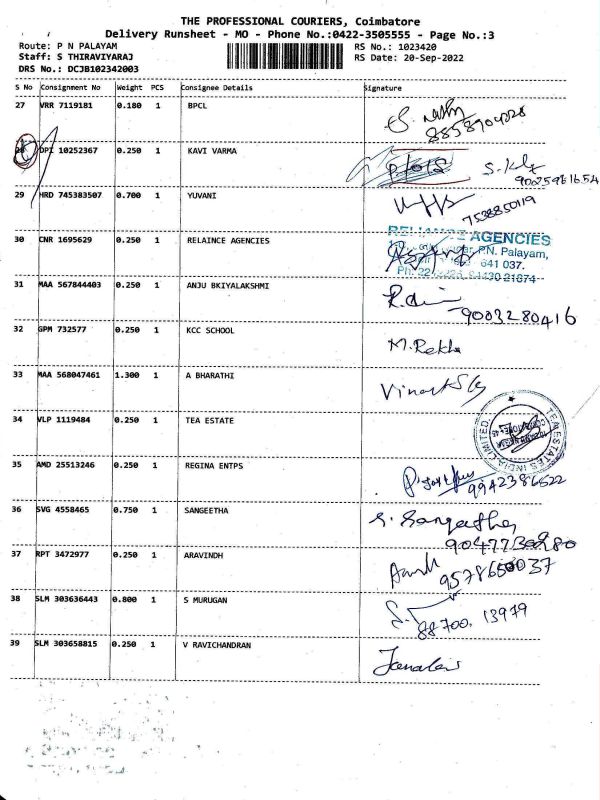 THE PROFESSIONAL COURIERS, Coimbatore
Delivery Runsheet - MO - Phone No.:0422-3505555 - Page No.:3
Route: P N PALAYAM
RS No.: 1023420
Staff: S THIRAVIYARAJ
RS Date: 20-Sep-2022
DRS No.: DCJB102342003
S No Consignment No Weight PCS Consignee Details Signature
27 VRR 7119181 0.180 1 BPCL
8858904228
28 DPI 10252367 0.250 1 KAVI VARMA
9025961654
29 HRD 745383507 0.700 1 YUVANI
7538850119
30 CNR 1695629 0.250 1 RELAINCE AGENCIES
RELIANCE AGENCIES
P.N. Palayam,
641 037.
31 MAA 567844403 0.250 1 ANJU BKIYALAKSHMI
9003280416
32 GPM 732577 0.250 1 KCC SCHOOL
M.Rekha
33 MAA 568047461 1.300 1 A BHARATHI
34 VLP 1119484 0.250 1 TEA ESTATE
TEA ESTATES INDIA LIMITED
35 AMD 25513246 0.250 1 REGINA ENTPS
9942386522
36 SVG 4558465 0.750 1 SANGEETHA
S. Sangeetha
9047730280
37 RPT 3472977 0.250 1 ARAVINDH
9578650037
38 SLM 303636443 0.800 1 S MURUGAN
88700. 13979
39 SLM 303658815 0.250 1 V RAVICHANDRAN